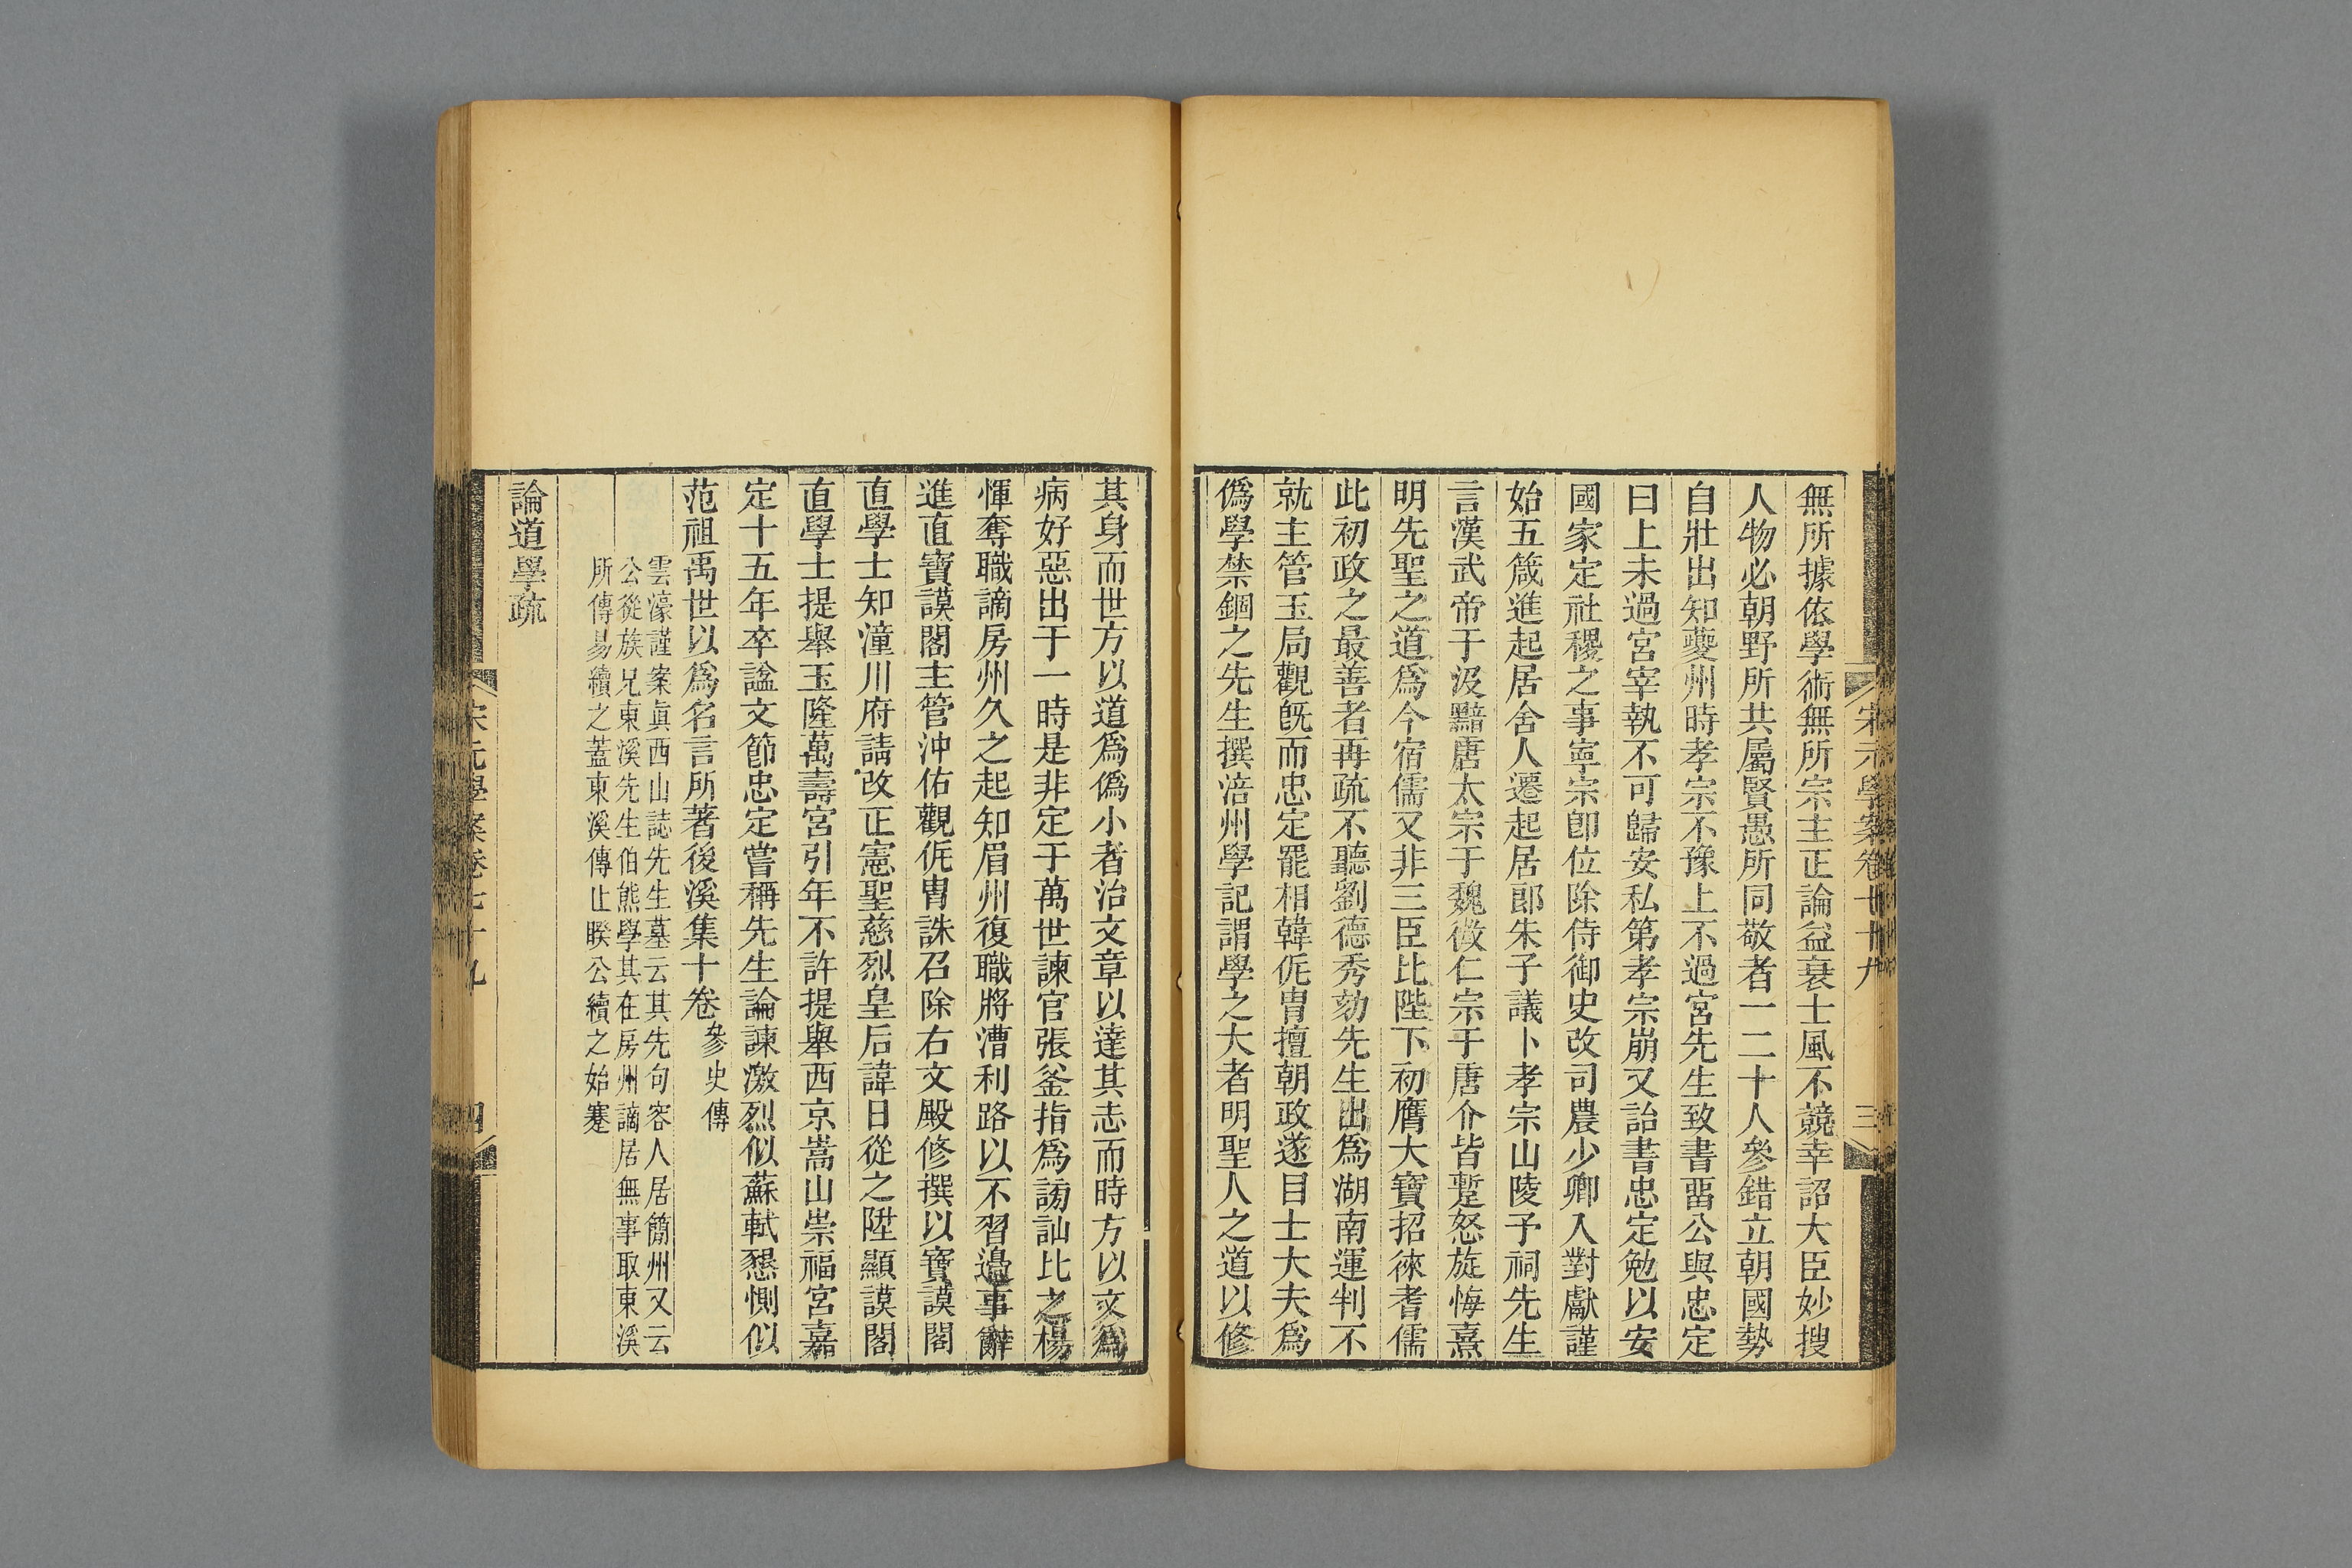 無所據依學術無所宗主正論益衰士風不競幸詔大臣妙搜
人物必朝野所共屬賢愚所同敬者一二十人參錯立朝國勢
自壯出知夔州時孝宗不豫上不過宮先生致書畱公與忠定
曰上未過宮宰執不可歸安私第孝宗崩又詒書忠定勉以安
國家定社稷之事寧宗卽位除侍御史改司農少卿入對獻謹
始五箴進起居舍人遷起居郎朱子議卜孝宗山陵予祠先生
言漢武帝于汲黯唐太宗于魏徵仁宗于唐介皆蹔怒旋悔熹
明先聖之道爲今宿儒又非三臣比陛下初膺大寶招徠耆儒
此初政之最善者再疏不聽劉德秀劾先生出爲湖南運判不
就主管玉局觀旣而忠定罷相韓侂冑擅朝政遂目士大夫爲
僞學禁錮之先生撰涪州學記謂學之大者明聖人之道以修
其身而世方以道爲僞小者治文章以達其志而時方以文爲
病好惡出于一時是非定于萬世諫官張釜指爲謗訕比之楊
惲奪職謫房州久之起知眉州復職將漕利路以不習邊事辭
進直寶謨閣主管沖佑觀侂冑誅召除右文殿修撰以寶謨閣
直學士知潼川府請改正憲聖慈烈皇后諱日從之陞顯謨閣
直學士提舉玉隆萬壽宮引年不許提舉西京嵩山崇福宮嘉
定十五年卒諡文節忠定嘗稱先生論諫激烈似蘇軾懇惻似
范祖禹世以爲名言所著後溪集十卷參史傳
雲濠謹案眞西山誌先生墓云其先句容人居簡州又云
公從族兄東溪先生伯熊學其在房州謫居無事取東溪
所傳易續之蓋東溪傳止睽公續之始蹇
論道學疏
宋元學案卷七十九
四
三